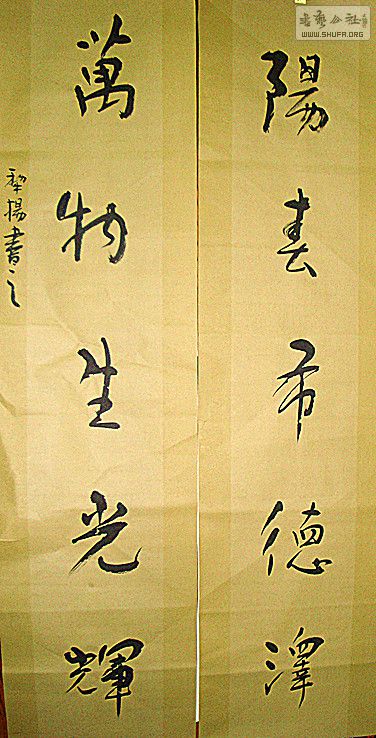 書藝公社
WWW.SHUFA.ORG
陽春布德澤
萬物生光輝
揚書之